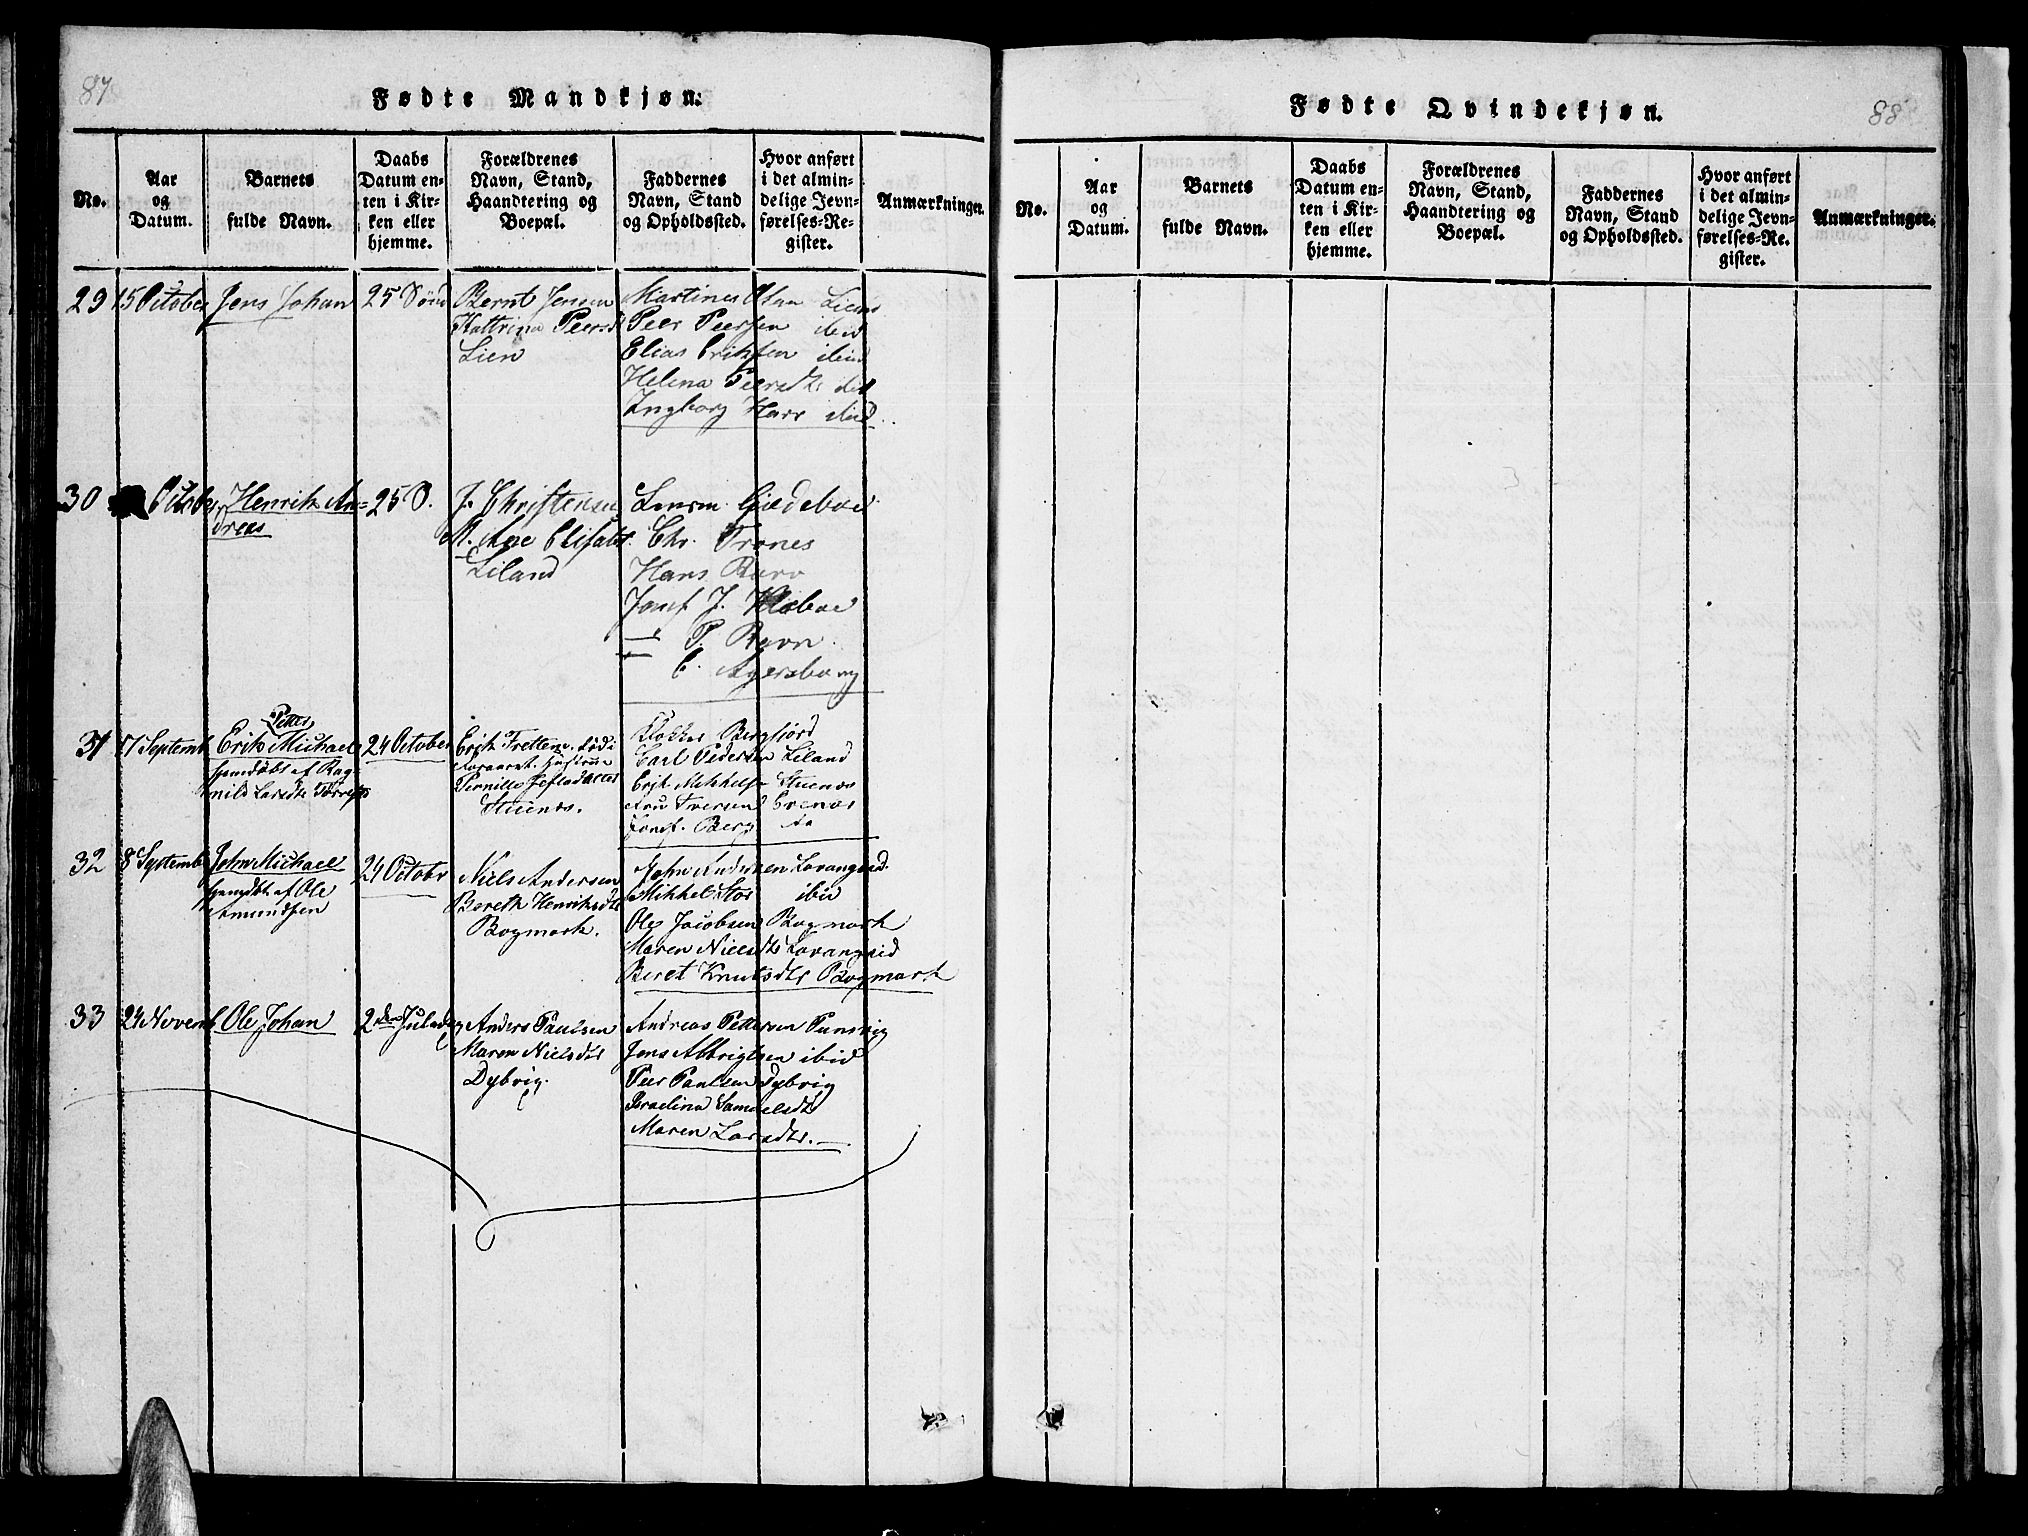 87
Fødte Mandkjøn.
No.
Aar
og
Datum.
Barnets
fulde Navn.
Daabs
Datum en-
ten i Kir-
ken eller
hjemme.
Forældrenes
Navn, Stand,
Haandtering og
Boepæl.
Faddernes
Navn, Stand
og Opholdssted.
Hvor anført
i det almin-
delige Jevn-
førelses-Re-
gister.
Anmærkninger.
29
15 October
Jens Johan
25
Bernt Jensen
Kattrina Peersd
Lien
Martines Olsen Lien
Peer Peersen ibid
Elias Eriksen ibid
Helena Peersdtr ibid
Ingborg Harr ibid
30
October
Henrik An-
dreas
25 O.
J. Christensen
M. Ane Elisabet
Liland
Lensm. Gjædeboe
Chr. Trones
Hans Rarv
Josef J. Klæboe
— P. Ravn
— C. Agersborg
31
17 Septemb
Petter
Erik Michael
hjemdøbt af Rag-
nild Larsdtr
24 October
Erik Trettem. død i
Pernille
Stuenæs.
Klokker Bergfjord
Carl Pedersen Liland
Erik Mikkels Stuenæs
Iversen Evenæs
Josef Berg
32
8 Septemb
John Michael
hjemdbt af Ole
Amundsen
24 Octobr
Niels Andersen
Bereth Henriksdtr
Bogmark.
John Andersen Lavangseid
Mikkel Stor ibid
Ole Jacobsen Bogmark
Maren Nielsdtr Lavangseid
Beret Knutsdtr Bogmark
33
24 Novemb
Ole Johan
2den Juledag
Anders Paulsen
Maren Nielsdtr
Dybvig.
Andreas Pettersen Punsvig
Jens Albrigtsen ibid
Peer Paulsen Dybvig
Israelina Samuelsdtr
Maren Larsdtr. —
Fødte Qvindekjøn.
88
No.
Aar
og
Datum.
Barnets
fulde Navn.
Daabs
Datum en-
ten i Kir-
ken eller
hjemme.
Forældrenes
Navn, Stand,
Haandtering og
Boepæl.
Faddernes
Navn, Stand
og Opholdssted.
Hvor anført
i det almin-
delige Jevn-
førelses-Re-
gister.
Anmærkninger.